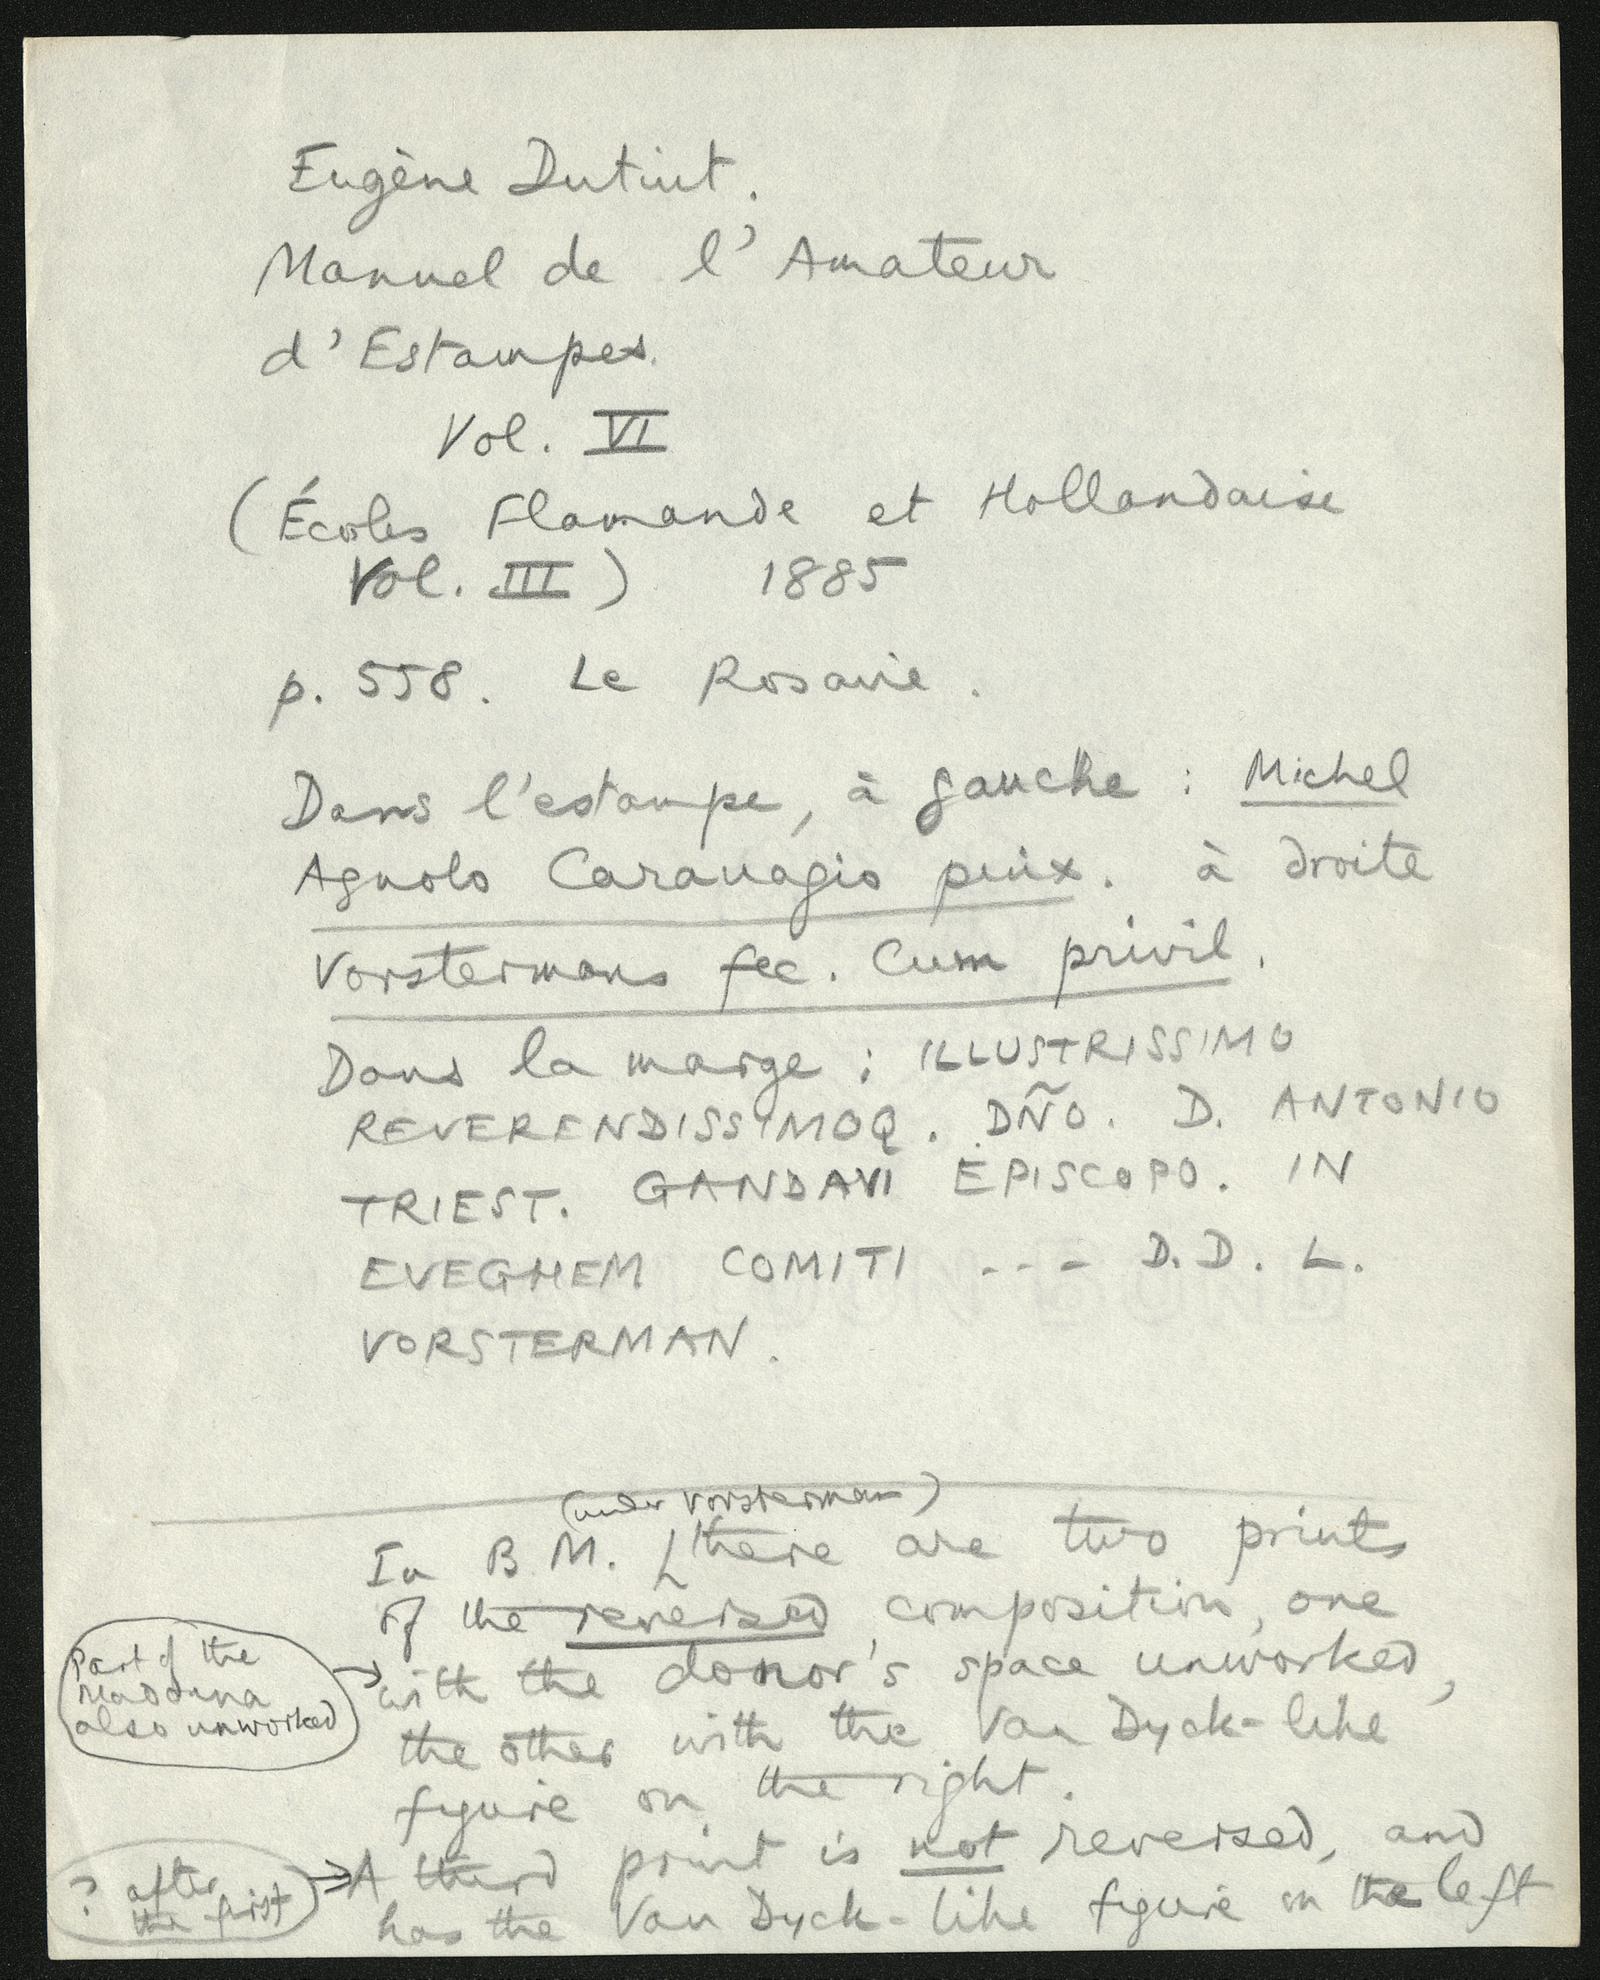 Eugène Dutuit.
Manuel de l'Amateur
d'Estampes.
Vol. VI
(Écoles Flamande et Hollandaise
Vol. III) 1885
p. 558. Le Rosaire.
Dans l'estampe, à gauche : Michel
Agnolo Caravagio pinx. à droite
Vorstermans fec. Cum privil.
Dans la marge : ILLUSTRISSIMO
REVERENDISSIMOQ. DÑO. D. ANTONIO
TRIEST. GANDAVI EPISCOPO. IN
EVEGHEM COMITI --- D.D. L.
VORSTERMAN.
(under Vorsterman)
In B.M. there are two prints
of the reversed composition, one
with the donor's space unworked,
the other with the Van Dyck-like
figure on the right.
A third print is not reversed, and
has the Van Dyck-like figure on the left
part of the
Madonna
also unworked
? after
the first